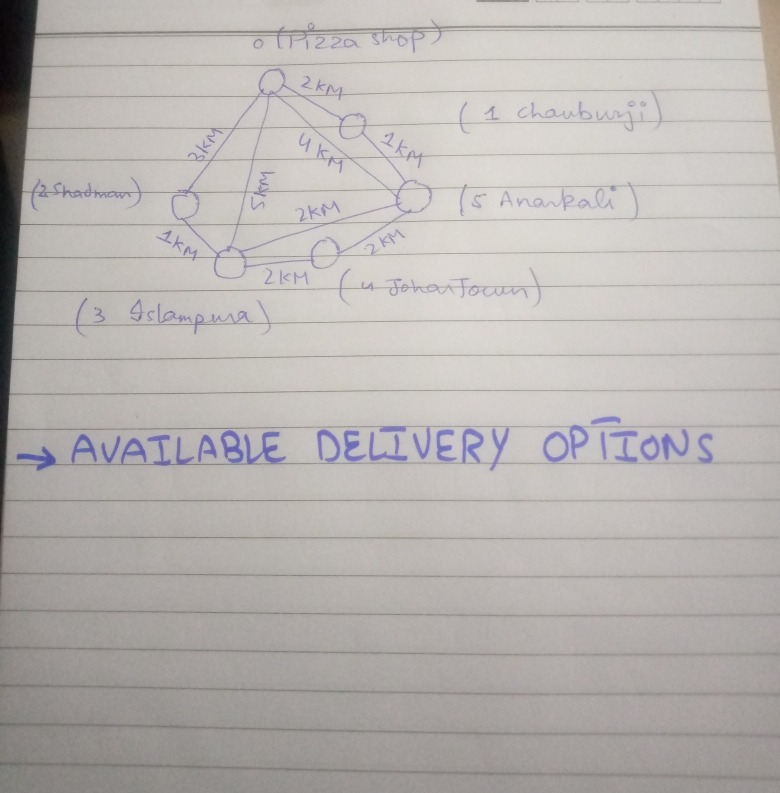 0 (Pizza shop)
2KM
(1 Chauburji)
3KM
4KM
1KM
(2 Shadman)
5KM
2KM
(5 Anarkali)
1KM
2KM
2KM
(4 JoharTown)
(3 Islampura)
→ AVAILABLE DELIVERY OPTIONS